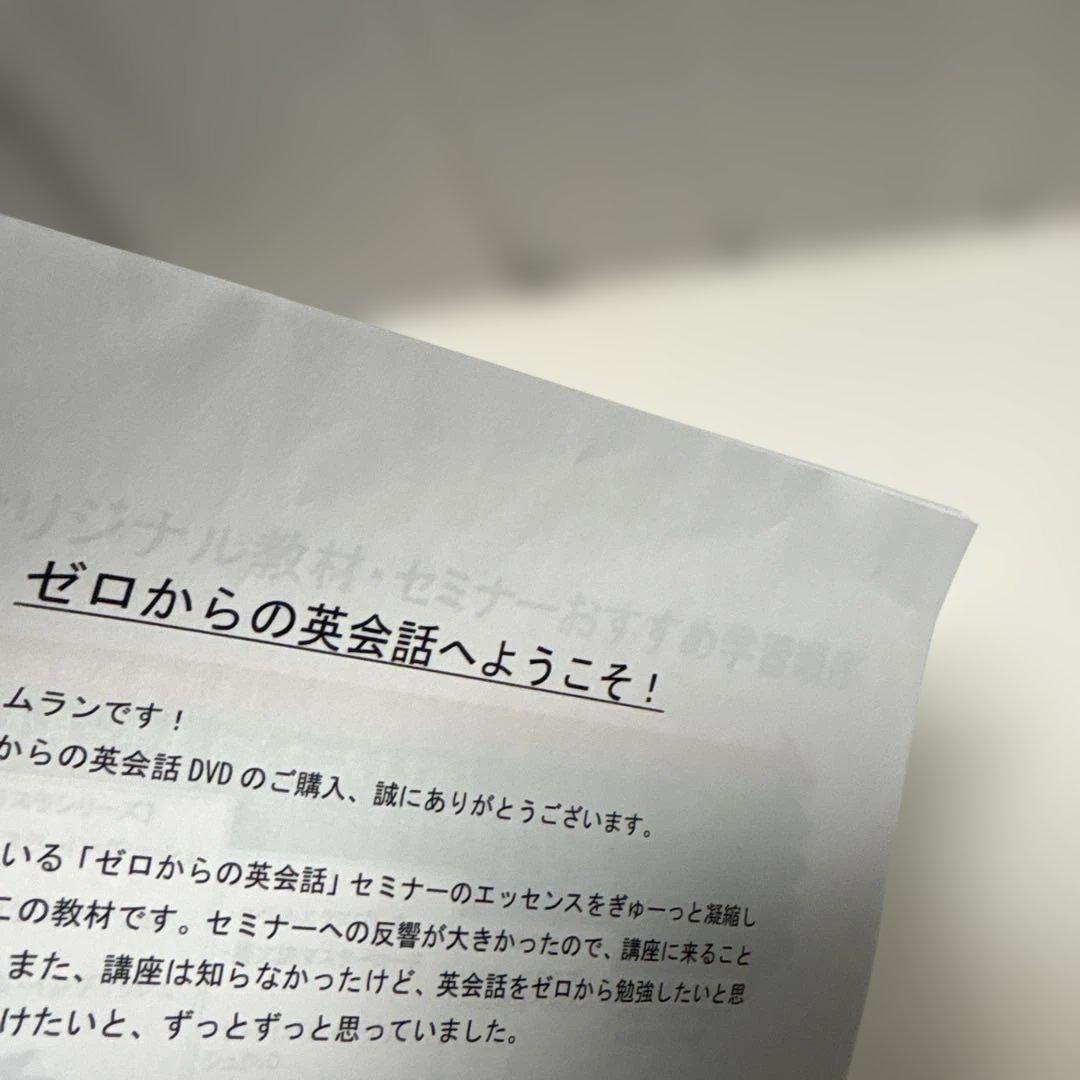 リジナル教材・セミナーおすすめ学習順序
ゼロからの英会話へようこそ！
ムランです！
からの英会話 DVD のご購入、誠にありがとうございます。
いる「ゼロからの英会話」セミナーのエッセンスをぎゅーっと凝縮し
この教材です。セミナーへの反響が大きかったので、講座に来ること
また、講座は知らなかったけど、英会話をゼロから勉強したいと思
けたいと、ずっとずっと思っていました。